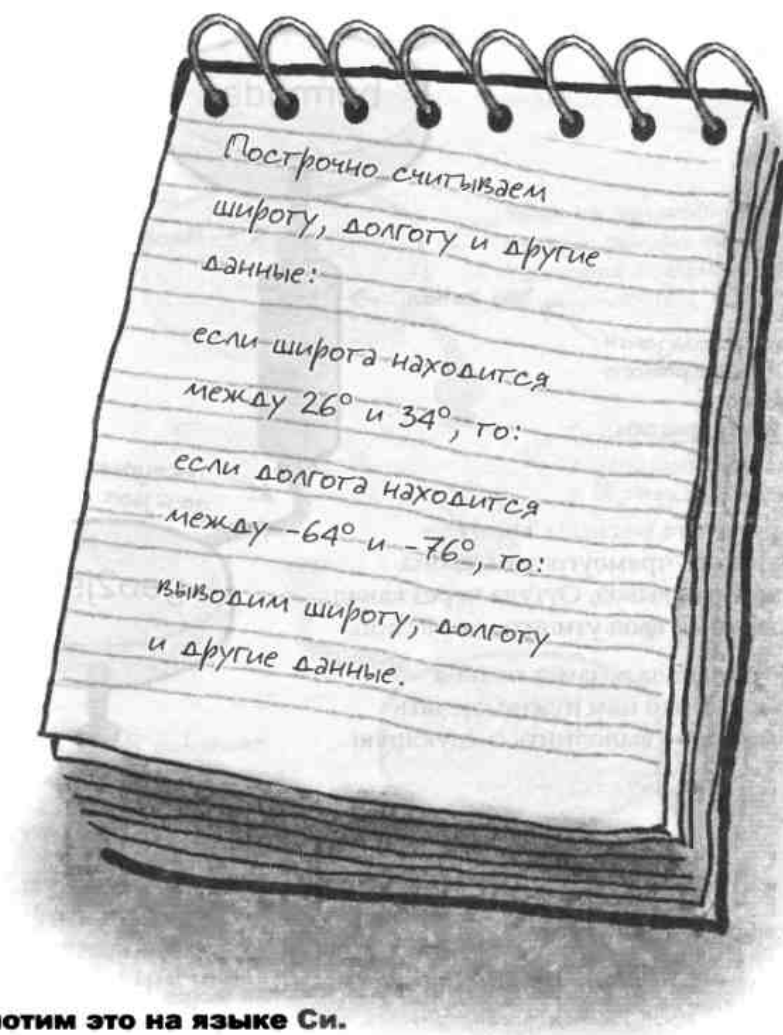 Построчно считываем
широту, долготу и другие
данные:
если широта находится
между 26° и 34°, то:
если долгота находится
между -64° и -76°, то:
выводим широту, долготу
и другие данные.
потим это на языке Си.